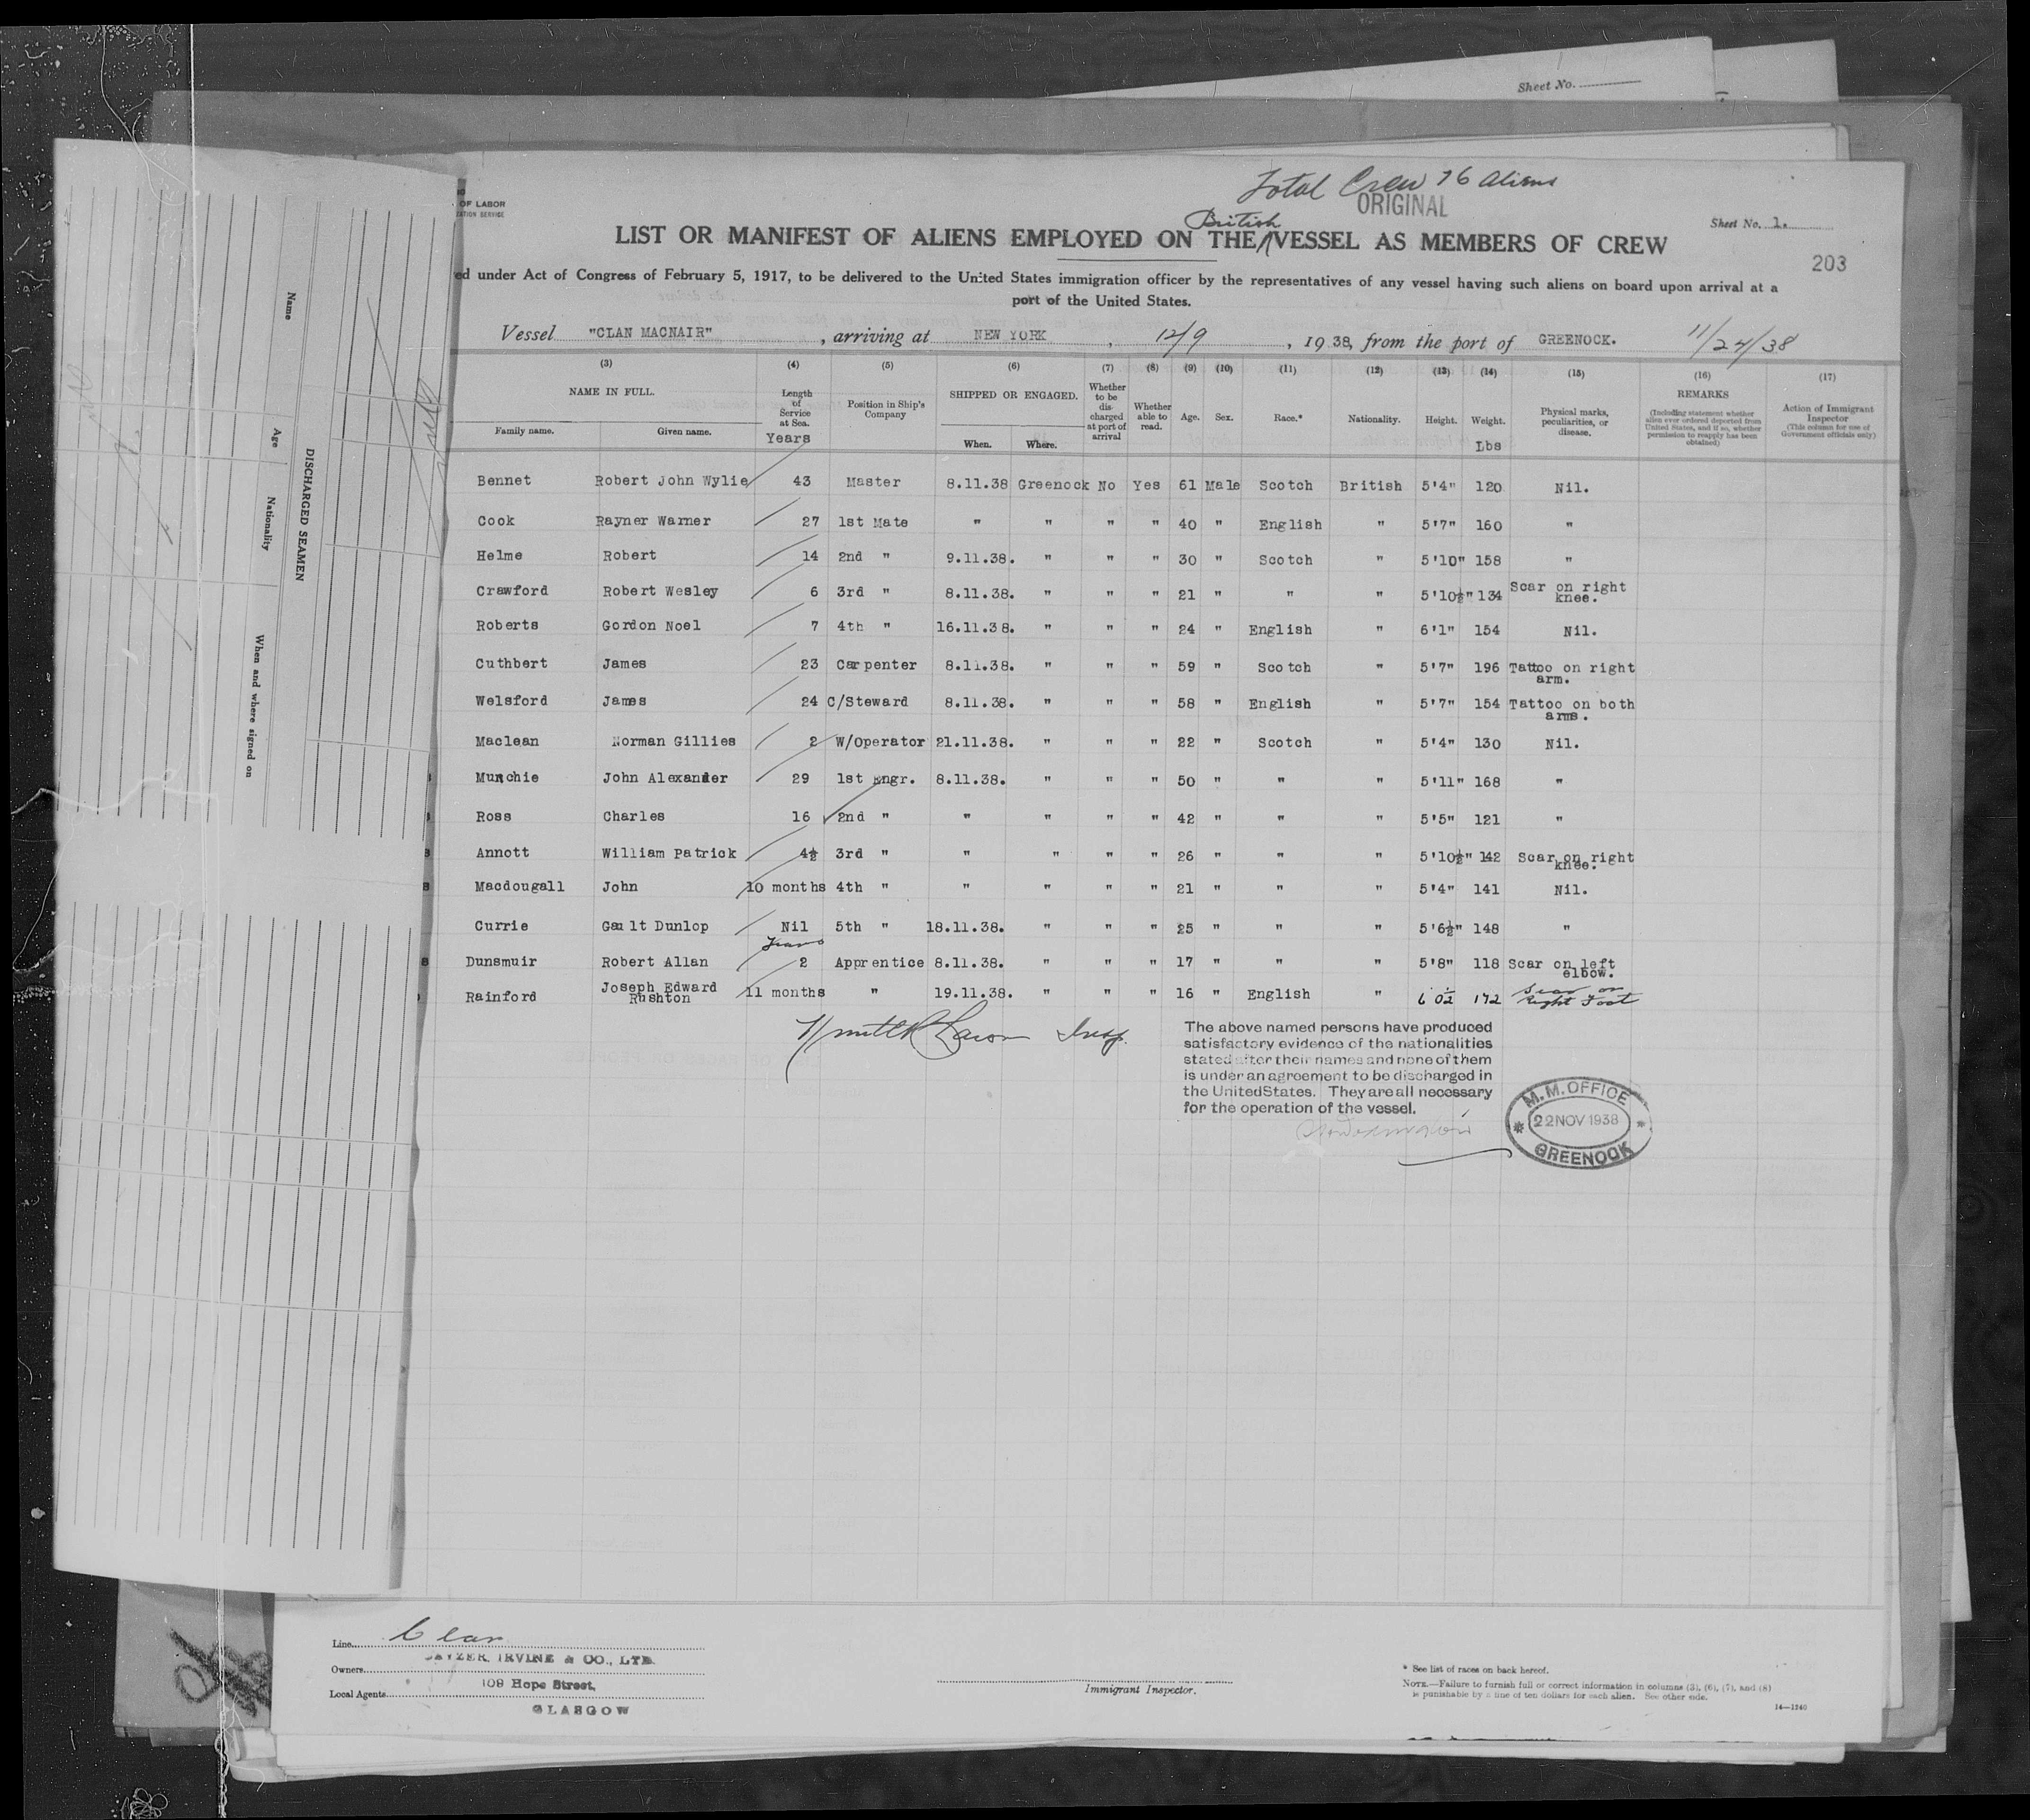 Sheet No.
Total Crew 76 Aliens
ORIGINAL
OF LABOR
British
Sheet No. 1.
LIST OR MANIFEST OF ALIENS EMPLOYED ON THE VESSEL AS MEMBERS OF CREW
203
ed under Act of Congress of February 5, 1917, to be delivered to the United States immigration officer by the representatives of any vessel having such aliens on board upon arrival at a
port of the United States.
Vessel "CLAN MACNAIR", arriving at NEW YORK, 12/9, 1938, from the port of GREENOCK. 11/24/38
(3) (4) (5) (6) (7) (8) (9) (10) (11) (12) (13) (14) (15) (16) (17)
NAME IN FULL. Length of Service at Sea. Years Position in Ship's Company SHIPPED OR ENGAGED. Whether to be discharged at port of arrival Whether able to read. Age. Sex. Race.* Nationality. Height. Weight. Lbs Physical marks, peculiarities, or disease. REMARKS (Including statement whether alien ever ordered deported from United States, and if so, whether permission to reapply has been obtained) Action of Immigrant Inspector (This column for use of Government officials only)
Family name. Given name. When. Where.
Bennet Robert John Wylie 43 Master 8.11.38 Greenock No Yes 61 Male Scotch British 5'4" 120 Nil.
Cook Rayner Warner 27 1st Mate " " " " 40 " English " 5'7" 160 "
Helme Robert 14 2nd " 9.11.38. " " " 30 " Scotch " 5'10" 158 "
Crawford Robert Wesley 6 3rd " 8.11.38. " " " 21 " " " 5'10½" 134 Scar on right knee.
Roberts Gordon Noel 7 4th " 16.11.38. " " " 24 " English " 6'1" 154 Nil.
Cuthbert James 23 Carpenter 8.11.38. " " " 59 " Scotch " 5'7" 196 Tattoo on right arm.
Welsford James 24 C/Steward 8.11.38. " " " 58 " English " 5'7" 154 Tattoo on both arms.
Maclean Norman Gillies 2 W/Operator 21.11.38. " " " 22 " Scotch " 5'4" 130 Nil.
Munchie John Alexander 29 1st Engr. 8.11.38. " " " 50 " " " 5'11" 168 "
Ross Charles 16 2nd " " " " " 42 " " " 5'5" 121 "
Annott William Patrick 4½ 3rd " " " " " 26 " " " 5'10½" 142 Scar on right knee.
Macdougall John 10 months 4th " " " " " 21 " " " 5'4" 141 Nil.
Currie Gault Dunlop Nil 5th " 18.11.38. " " " 25 " " " 5'6½" 148 "
Dunsmuir Robert Allan years 2 Apprentice 8.11.38. " " " 17 " " " 5'8" 118 Scar on left elbow.
Rainford Joseph Edward Rushton 11 months " 19.11.38. " " " 16 " English " 6 0½ 172 Scar on Right Foot
Insp.
The above named persons have produced
satisfactory evidence of the nationalities
stated after their names and none of them
is under an agreement to be discharged in
the United States. They are all necessary
for the operation of the vessel.
M.M. OFFICE
22 NOV 1938
GREENOCK
Name
Age
Nationality
When and where signed on
DISCHARGED SEAMEN
Line Clan
Owners CAYZER, IRVINE & CO., LTD.
Local Agents 109 Hope Street,
GLASGOW
Immigrant Inspector.
* See list of races on back hereof.
NOTE.—Failure to furnish full or correct information in columns (3), (6), (7), and (8)
is punishable by a fine of ten dollars for each alien. See other side.
14—1240